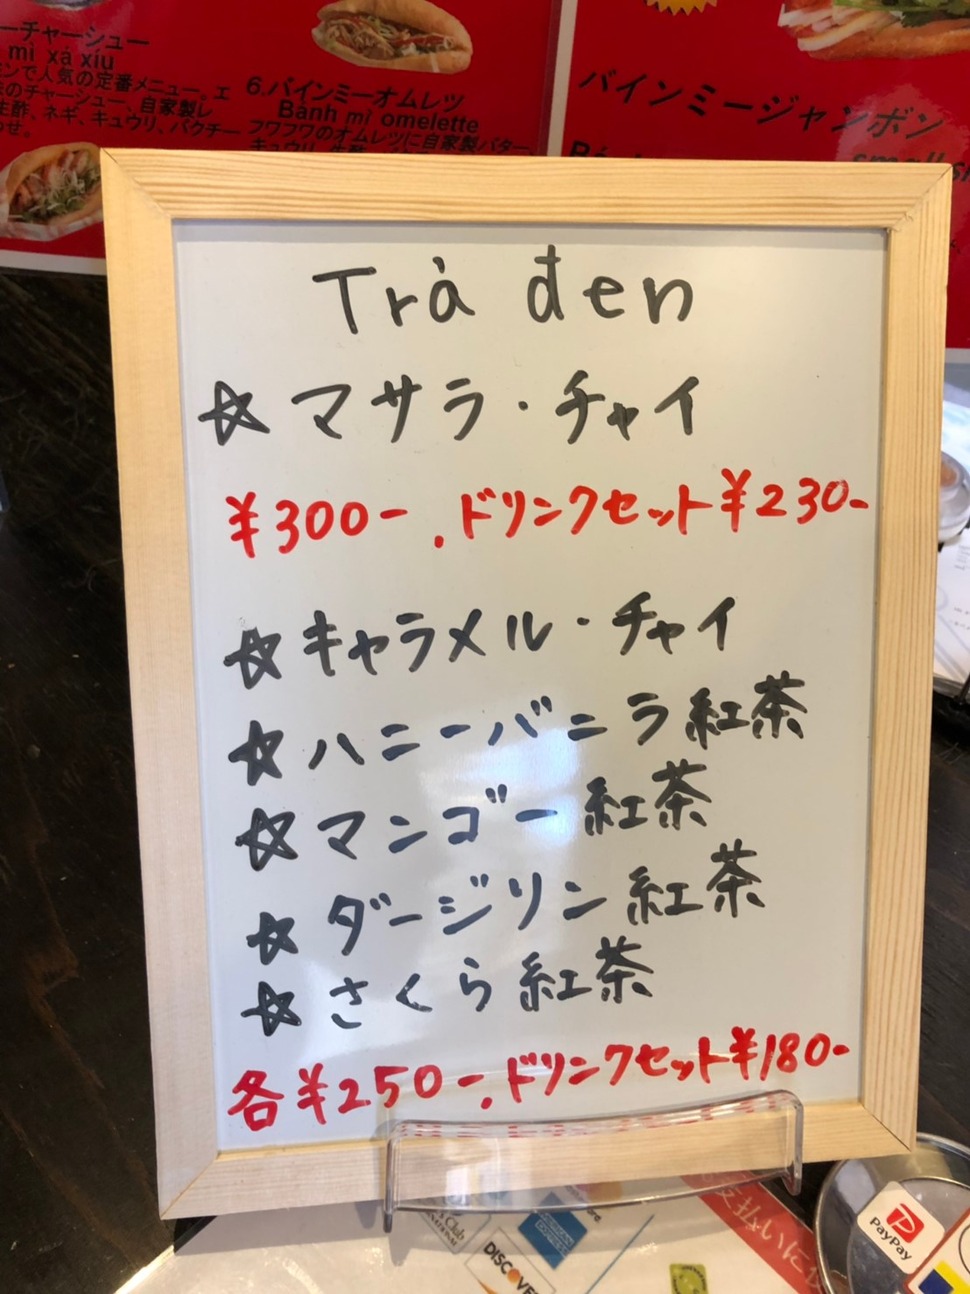 ーチャーシュー
mì xá xíu
ンで人気の定番メニュー。エ
のチャーシュー、自家製レ
生酢、ネギ、キュウリ、パクチー
わせ。
6.バインミーオムレツ
Bánh mì omelette
フワフワのオムレツに自家製バター
キュウリ
バインミージャンボン
Trà đen
☆マサラ・チャイ
¥300-.ドリンクセット¥230-
☆キャラメル・チャイ
☆ハニーバニラ紅茶
☆マンゴー紅茶
☆ダージリン紅茶
☆さくら紅茶
各¥250-.ドリンクセット¥180-
Club
DISCOVER
AMERICAN EXPRESS
支払いに
PayPay